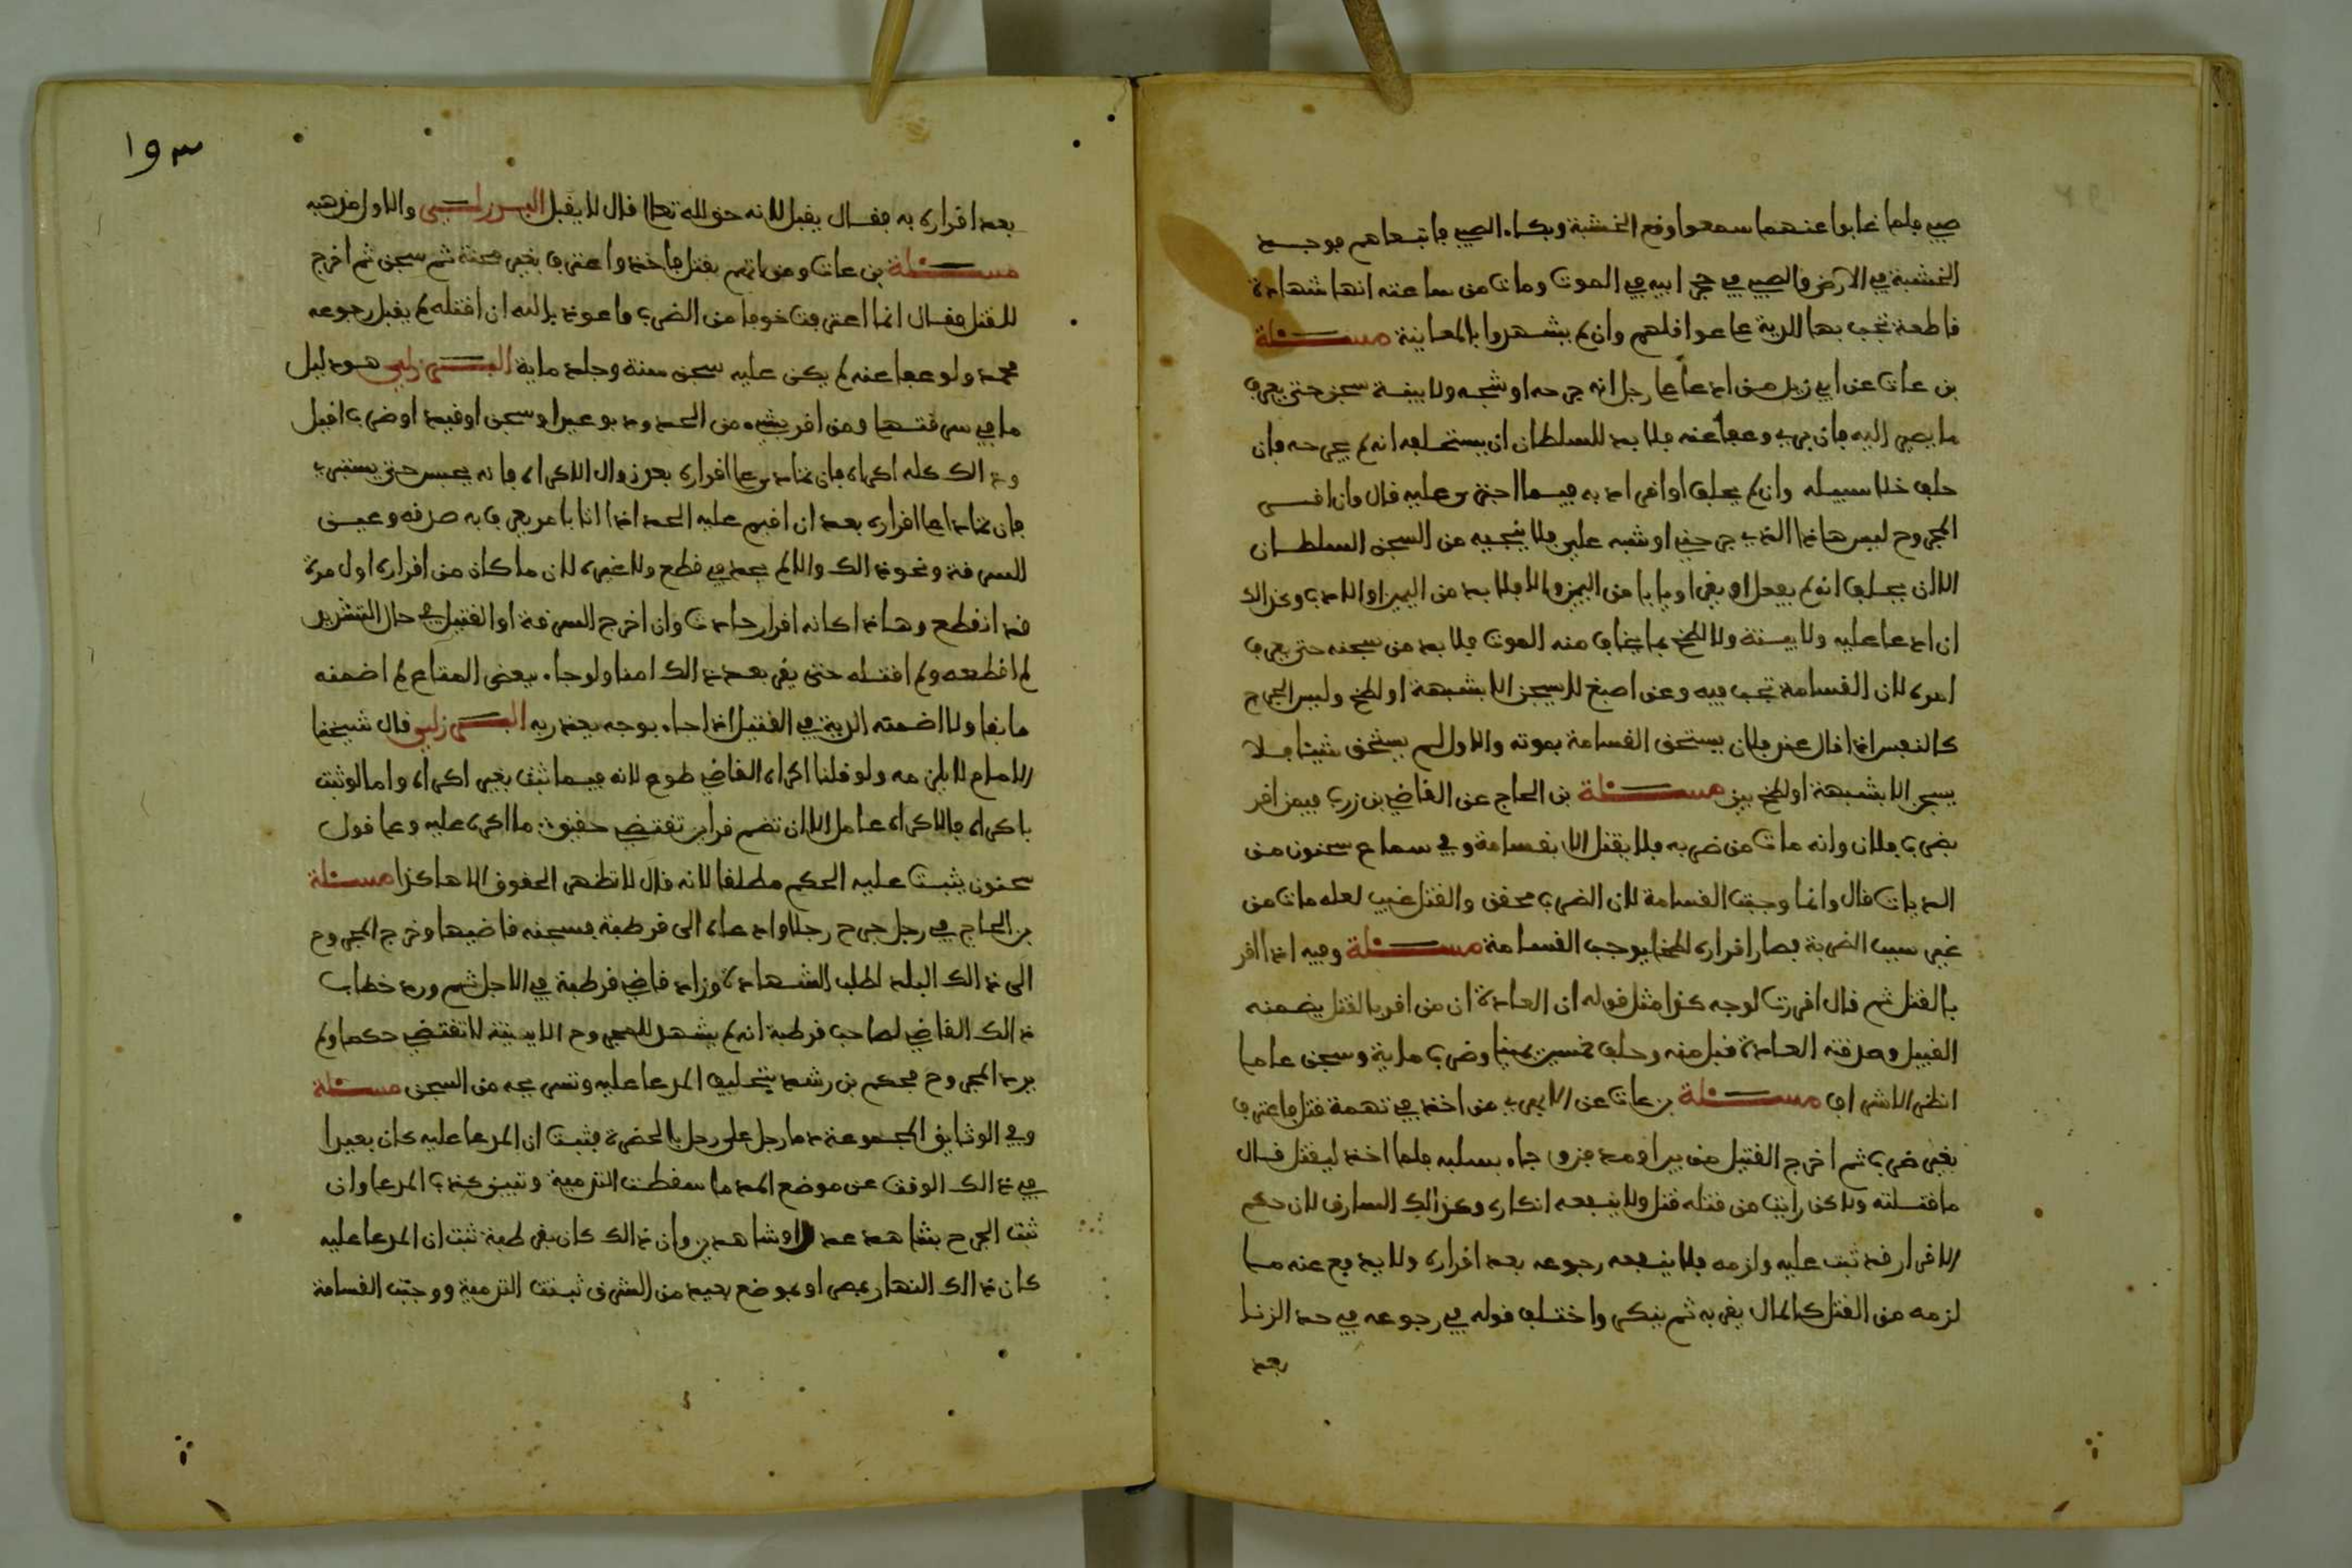 صبي فلما غابوا عنهما سمعوا وقع الخشبة وبكاء الصبي فاتبعاهم فوجد
الخشبة في الارض والصبي في حجر ابيه في الموت ومات من ساعته انها شهادة
قاطعة تجب بها الدية على عواقلهم وان لم يشهدوا بالمعاينة مسئلة
بن عات عن ابي زيد من ادعا على رجل انه جرحه او شجه ولا بينة سجن حتى يعرف
ما يصير اليه فان برئ وعفا عنه فلا بد للسلطان ان يستحلفه انه لم يجرحه فان
حلف خلا سبيله وان لم يحلف او اقر ادبه فيما اجترى عليه قال وان اقر
المجروح ليس هاذا الذي جرحني او شبه علي فلا ينجيه من السجن السلطان
الا ان يحلف انه لم يفعل او يقر او يابا من اليمين والا فلا بد من اليمين او الادب وكذالك
ان ادعا عليه ولا بينة ولا لطخ بما يخاف منه الموت فلا بد من سجنه حتى يعرف
امره لان القسامة تجب فيه وعن اصبغ لا يسجن الا بشبهة او لطخ وليس الجرح
كالنفس اذا قال عند فلان يستحق القسامة بموته والاول لم يستحق شيئا فلا
يسجن الا بشبهة او لطخ بين مسئلة بن الحاج عن القاضي بن زرب فيمن اقر
بضرب فلان وانه مات من ضربه فلا يقتل الا بقسامة وفي سماع سحنون من
الديات قال وانما وجبت القسامة لان الضرب محقق والقتل غيب لعله مات من
غير سبب الضربة فصار اقراره لطخا يوجب القسامة مسئلة وفيه اذا اقر
بالقتل ثم قال اقررت لوجه كذا مثل قوله ان العادة ان من اقر بالقتل يضمنه
القبيل وصدقته العادة قبل منه وحلف خمسين يمينا وضرب ماية وسجن عاما
انظر الاشراف مسئلة بن عات عن الابهري من اخذ في تهمة قتل فاعترف
بغير ضرب ثم اخرج القتيل من بير او مد فزو جاء بسلبه فلما اخذ ليقتل قال
ما قتلته ولاكن رايت من قتله قتل ولا ينفعه انكاره وكذالك السارق لان حكم
الاقرار قد ثبت عليه ولزمه فلا ينفعه رجوعه بعد اقراره ولا يدفع عنه ما
لزمه من القتل كالمال يقر به ثم ينكر واختلف قوله في رجوعه في حد الزنا
بعد
١٩٣
بعد اقراره به فقال يقبل لانه حق لله تعالى قال لا يقبل البرزلي والاول مذهبه
مسئلة بن عات ومن اتهم بقتل فاخذ واعترف بغير محنة ثم سجن ثم اخرج
للقتل فقال انما اعترفت خوفا من الضرب فاعوذ بالله ان اقتله لم يقبل رجوعه
محمد ولو عفا عنه لم يكن عليه سجن سنة وجلد ماية البرزلي هو دليل
ما في سرقتها ومن اقر بشيء من الحدود بوعيد او سجن او قيد او ضرب اقيل
وذالك كله اكراه فان تمادى على اقراره بعد زوال الاكراه فانه يحبس حتى يستبرى
فان تمادا على اقراره بعد ان اقيم عليه الحد اذا اتا بامر يعرف به صدقه وعين
السرقة ونحو ذالك والا لم يحد في قطع ولا غيره لان ما كان من اقراره اول مرة
قد انقطع وهاذا كانه اقرار حادث وان اخرج السرقة او القتيل في حال التشديد
لم اقطعه ولم اقتله حتى يقر بعد ذالك امنا ولو جاء ببعض المتاع لم اضمنه
ما بقا ولا اضمنه الدية في القتيل اذا جاء بوجه يعذر به البرزلي قال شيخنا
الامام لا يلزمه ولو قلنا اكراه القاضي طوع لانه فيما ثبت بغير اكراه واما لو ثبت
باكراه فالاكراه عامل الا ان تضم قراين تقتضي حقيقة ما اكره عليه وعلى قول
سحنون يثبت عليه الحكم مطلقا لانه قال لا تظهر الحقوق الا هاكذا مسئلة
بن الحاج في رجل جرح رجلا وادعاه الى قرطبة فسجنه قاضيها وخرج المجروح
الى ذالك البلد لطلب الشهادة وزاد قاضي قرطبة في الاجل ثم ورد خطاب
ذالك القاضي لصاحب قرطبة انه لم يشهد للمجروح الا بينة لا تقتضي حكما ولم
يرد المجروح فحكم بن رشد بتحليف المدعا عليه وتسريحه من السجن مسئلة
وفي الوثايق المجموعة دما رجل على رجل بالحضرة فثبت ان المدعا عليه كان بعيدا
في ذالك الوقت عن موضع المدما سقطت التدمية وتبين كذب المدعا وان
ثبت الجرح بشاهد عدل او شاهدين وان ذالك كان بقرطبة ثبت ان المدعا عليه
كان ذالك النهار بمصر او بموضع بعيد من الشرق ثبتت التدمية ووجبت القسامة